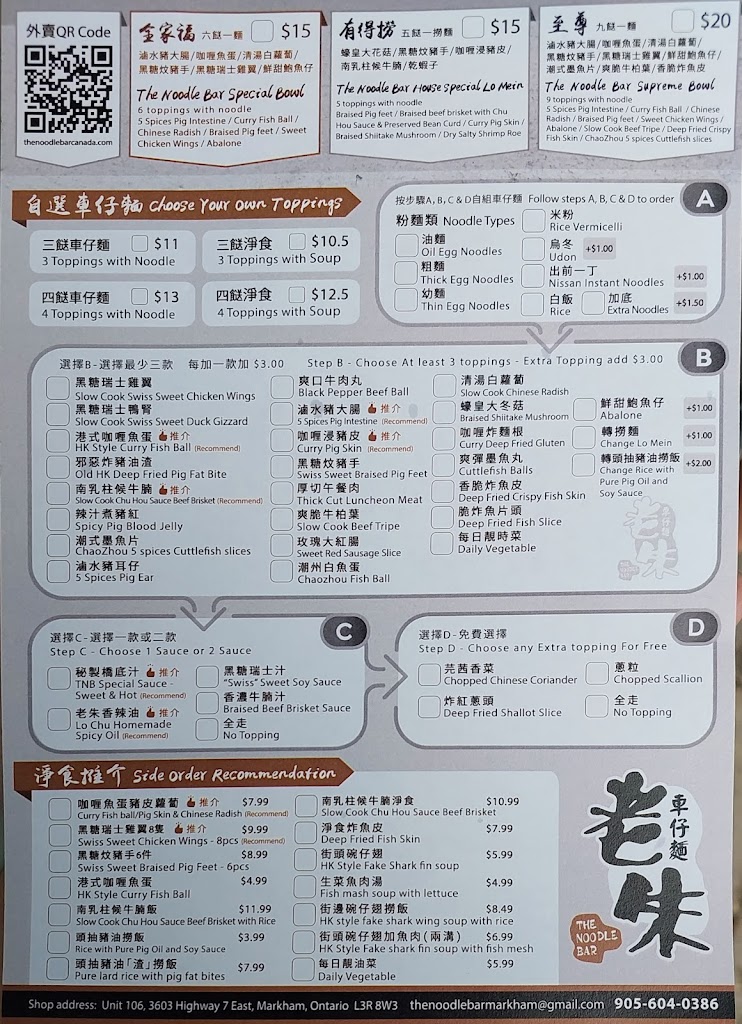 外賣QR Code
thenoodlebarcanada.com
全家福 六餸一麵 $15
滷水豬大腸/咖喱魚蛋/清湯白蘿蔔/
黑糖炆豬手/黑糖瑞士雞翼/鮮甜鮑魚仔
The Noodle Bar Special Bowl
6 toppings with noodle
5 Spices Pig Intestine / Curry Fish Ball /
Chinese Radish / Braised Pig feet / Sweet
Chicken Wings / Abalone
有得撈 五餸一撈麵 $15
蠔皇大花菇/黑糖炆豬手/咖喱浸豬皮/
南乳柱候牛腩/乾蝦子
The Noodle Bar House Special Lo Mein
5 toppings with noodle
Braised Pig feet / Braised beef brisket with Chu
Hou Sauce & Preserved Bean Curd / Curry Pig Skin /
Braised Shiitake Mushroom / Dry Salty Shrimp Roe
至尊 九餸一麵 $20
滷水豬大腸/咖喱魚蛋/清湯白蘿蔔/
黑糖炆豬手/黑糖瑞士雞翼/鮮甜鮑魚仔/
潮式墨魚片/爽脆牛柏葉/香脆炸魚皮
The Noodle Bar Supreme Bowl
9 toppings with noodle
5 Spices Pig Intestine / Curry Fish Ball / Chinese
Radish / Braised Pig feet / Sweet Chicken Wings /
Abalone / Slow Cook Beef Tripe / Deep Fried Crispy
Fish Skin / ChaoZhou 5 spices Cuttlefish slices
自選車仔麵 Choose Your Own Toppings
三餸車仔麵 $11
3 Toppings with Noodle
三餸淨食 $10.5
3 Toppings with Soup
四餸車仔麵 $13
4 Toppings with Noodle
四餸淨食 $12.5
4 Toppings with Soup
按步驟A, B, C & D自組車仔麵 Follow steps A, B, C & D to order
A
粉麵類 Noodle Types
油麵
Oil Egg Noodles
粗麵
Thick Egg Noodles
幼麵
Thin Egg Noodles
米粉
Rice Vermicelli
烏冬
Udon
+$1.00
出前一丁
Nissan Instant Noodles
+$1.00
白飯
Rice
加底
Extra Noodles
+$1.50
選擇B-選擇最少三款 每加一款加 $3.00 Step B - Choose At least 3 toppings - Extra Topping add $3.00
B
黑糖瑞士雞翼
Slow Cook Swiss Sweet Chicken Wings
黑糖瑞士鴨腎
Slow Cook Swiss Sweet Duck Gizzard
港式咖喱魚蛋 推介
HK Style Curry Fish Ball (Recommend)
邪惡炸豬油渣
Old HK Deep Fried Pig Fat Bite
南乳柱候牛腩 推介
Slow Cook Chu Hou Sauce Beef Brisket (Recommend)
辣汁煮豬紅
Spicy Pig Blood Jelly
潮式墨魚片
ChaoZhou 5 spices Cuttlefish slices
滷水豬耳仔
5 Spices Pig Ear
爽口牛肉丸
Black Pepper Beef Ball
滷水豬大腸 推介
5 Spices Pig Intestine (Recommend)
咖喱浸豬皮 推介
Curry Pig Skin (Recommend)
黑糖炆豬手
Swiss Sweet Braised Pig Feet
厚切午餐肉
Thick Cut Luncheon Meat
爽脆牛柏葉
Slow Cook Beef Tripe
玫瑰大紅腸
Sweet Red Sausage Slice
潮州白魚蛋
Chaozhou Fish Ball
清湯白蘿蔔
Slow Cook Chinese Radish
蠔皇大冬菇
Braised Shiitake Mushroom
咖喱炸麵根
Curry Deep Fried Gluten
爽彈墨魚丸
Cuttlefish Balls
香脆炸魚皮
Deep Fried Crispy Fish Skin
脆炸魚片頭
Deep Fried Fish Slice
每日靚時菜
Daily Vegetable
鮮甜鮑魚仔
Abalone
+$1.00
轉撈麵
Change Lo Mein
+$1.00
轉頭抽豬油撈飯
Change Rice with
Pure Pig Oil and
Soy Sauce
+$2.00
老朱
車仔麵
選擇C-選擇一款或二款
Step C - Choose 1 Sauce or 2 Sauce
C
秘製橋底汁 推介
TNB Special Sauce -
Sweet & Hot (Recommend)
老朱香辣油 推介
Lo Chu Homemade
Spicy Oil (Recommend)
黑糖瑞士汁
"Swiss" Sweet Soy Sauce
香濃牛腩汁
Braised Beef Brisket Sauce
全走
No Topping
選擇D-免費選擇
Step D - Choose any Extra topping For Free
D
芫茜香菜
Chopped Chinese Coriander
炸紅蔥頭
Deep Fried Shallot Slice
蔥粒
Chopped Scallion
全走
No Topping
淨食推介 Side Order Recommendation
咖喱魚蛋豬皮蘿蔔 推介 $7.99
Curry Fish ball/Pig Skin & Chinese Radish (Recommend)
黑糖瑞士雞翼8隻 推介 $9.99
Swiss Sweet Chicken Wings - 8pcs (Recommend)
黑糖炆豬手6件 $8.99
Swiss Sweet Braised Pig Feet - 6pcs
港式咖喱魚蛋 $4.99
HK Style Curry Fish Ball
南乳柱候牛腩飯 $11.99
Slow Cook Chu Hou Sauce Beef Brisket with Rice
頭抽豬油撈飯 $3.99
Rice with Pure Pig Oil and Soy Sauce
頭抽豬油「渣」撈飯 $7.99
Pure lard rice with pig fat bites
南乳柱候牛腩淨食 $10.99
Slow Cook Chu Hou Sauce Beef Brisket
淨食炸魚皮 $7.99
Deep Fried Fish Skin
街頭碗仔翅 $5.99
HK Style Fake Shark fin soup
生菜魚肉湯 $4.99
Fish mash soup with lettuce
街邊碗仔翅撈飯 $8.49
HK style fake shark wing soup with rice
街頭碗仔翅加魚肉(兩溝) $6.99
HK Style Fake shark fin soup with fish mesh
每日靚油菜 $5.99
Daily Vegetable
老朱
車仔麵
THE
NOODLE
BAR
Shop address: Unit 106, 3603 Highway 7 East, Markham, Ontario L3R 8W3 thenoodlebarmarkham@gmail.com 905-604-0386